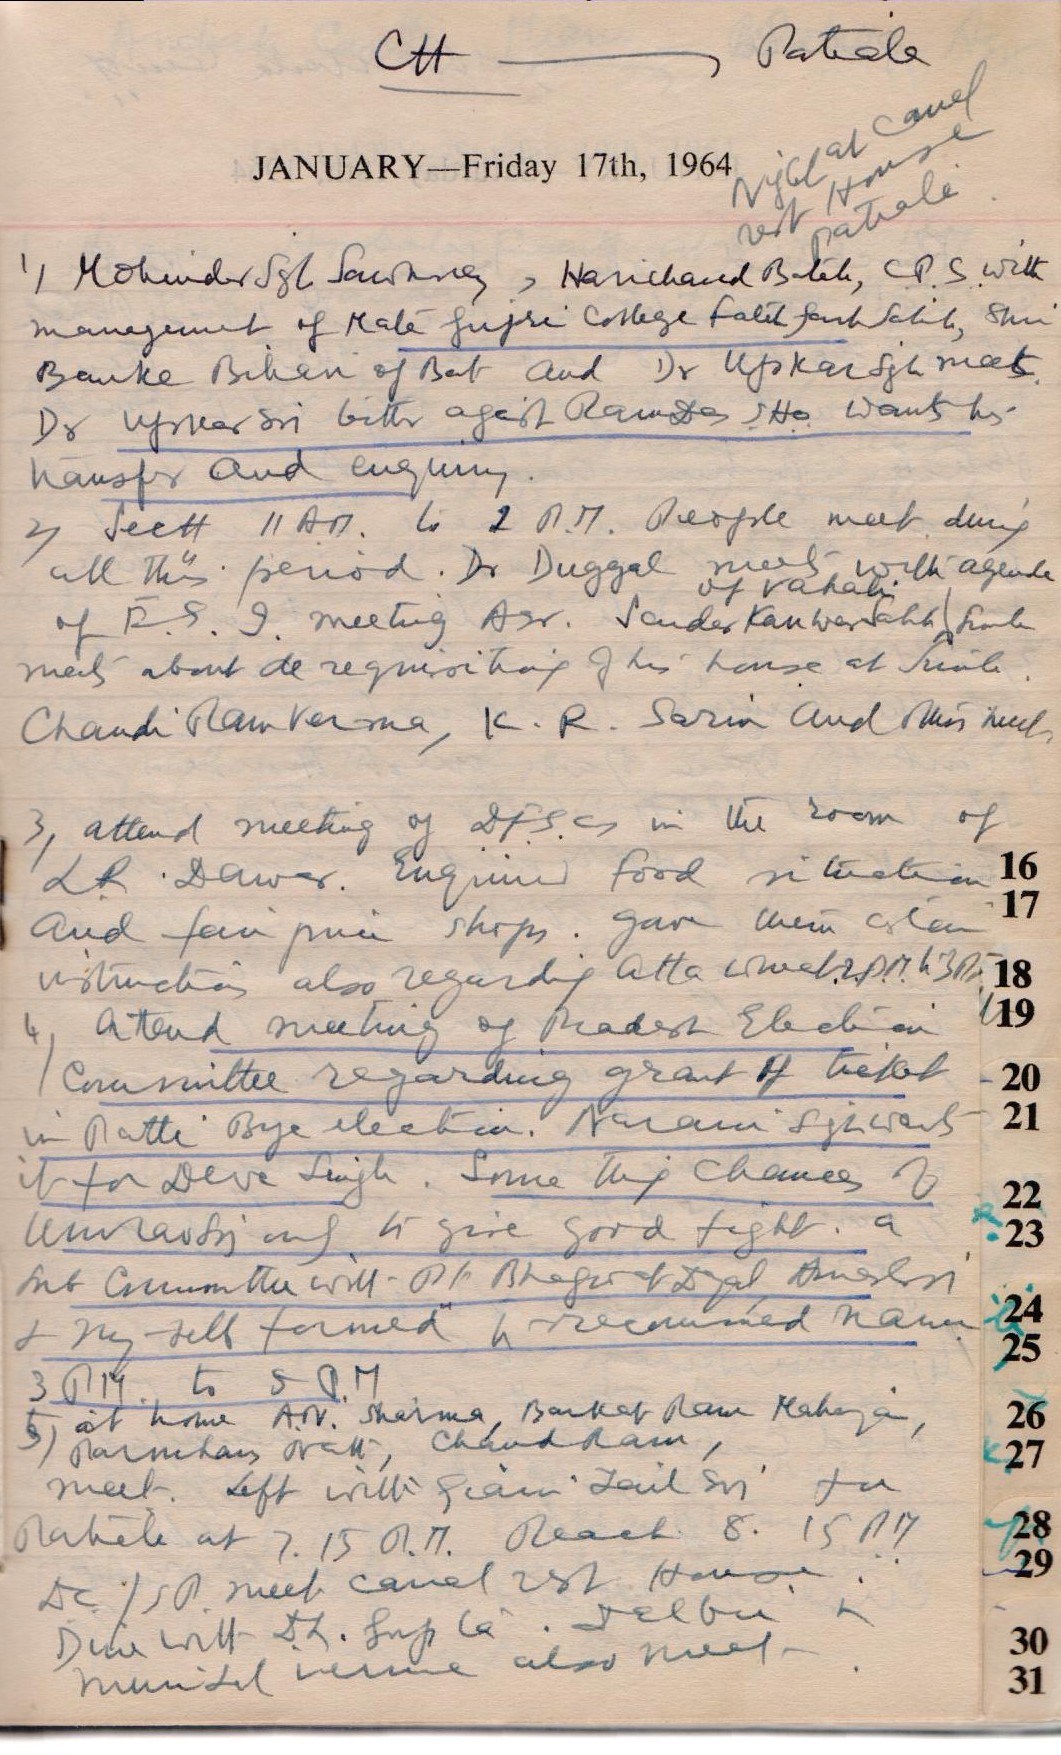 CH —— Patiala
Night at Canal
rest House
Patiala
JANUARY—Friday 17th, 1964
1) Mohinder Sgh Sawhney, Harichand Batish, C.P.S. with
management of Mata Gujri College Fatehgarh Sahib, Shri
Banke Bihari of Bat and Dr Upkar Sgh meets.
Dr Upkar Sri bitter agest Ram Das SHO wants his
transfer and enquiry.
2) Sectt 11 AM. to 2 P.M. People meet during
all this period. Dr Duggal meets with agenda
of Rahali
of E.S.I. meeting Asr. Kanwar Simla
meets about de requisitioning of his house at Simla.
Chandi Ram Verma, K. R. Sarin and others meets
3, attend meeting of DFSCs in the room of
LR Dawar. Enquired food situation
and fair price shops. Gave them
instructions also regarding Atta 2 P.M. to 3 P.M.
4, Attend meeting of Pradesh Election
Committee regarding grant of ticket
in Patti Bye election. Narain Sgh wants
it for Deva Singh. Some thing Chances of
to give good fight. a
Sub Committee with Pt Bhagwat Dyal,
& my self formed to recommend name
3 P.M. to 5 P.M
5) at home A.N. Sharma, Barkat Ram Mahajan,
Chand Ram,
meet. Left with Giani Zail Sri for
Patiala at 7.15 P.M. Reach 8.15 PM
DC/SP meet canal rest House.
Dine with D.L. Gupta.
also meet.
16
17
18
19
20
21
22
23
24
25
26
27
28
29
30
31